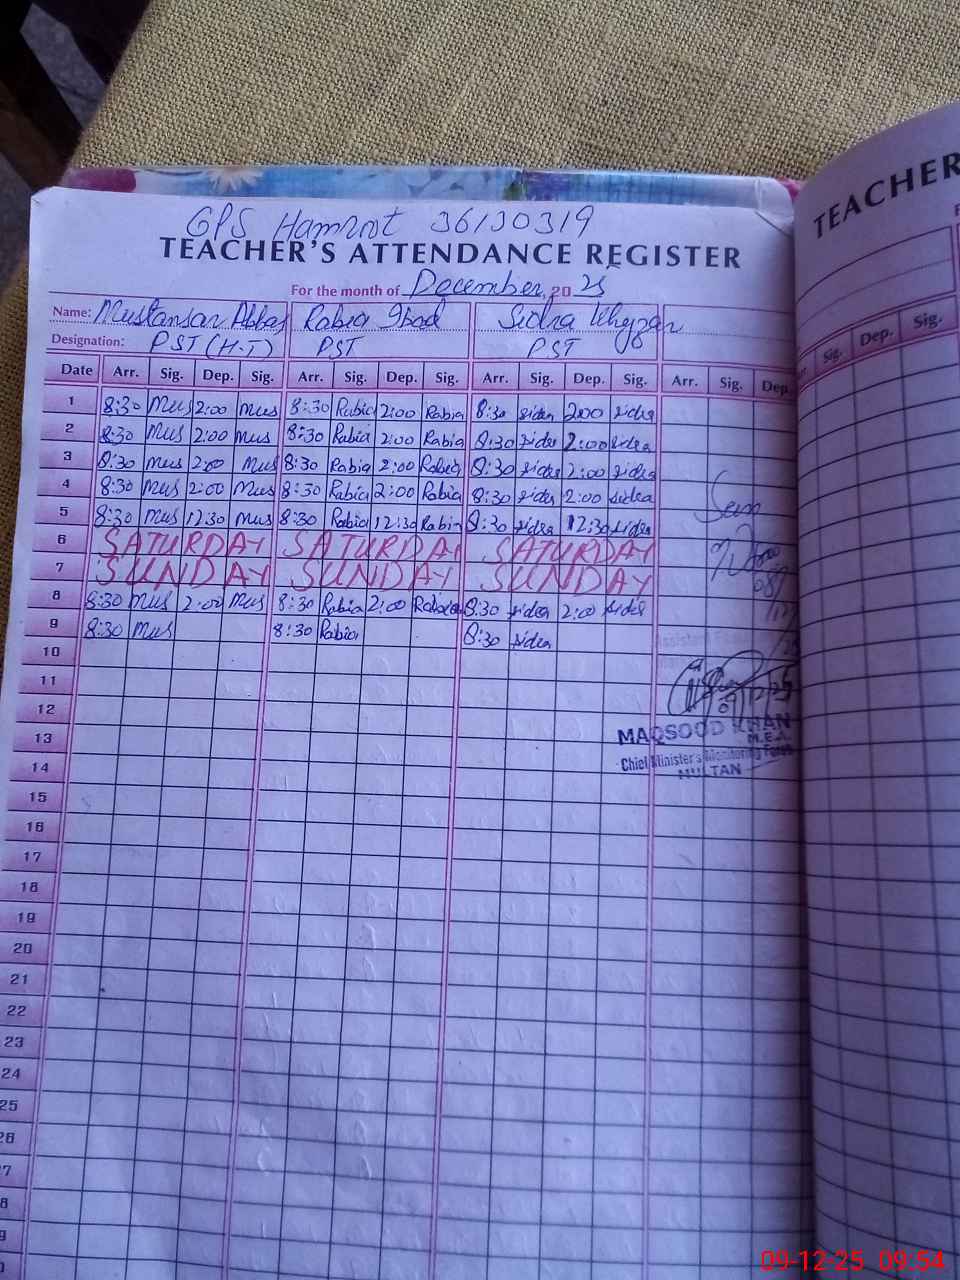 GPS Hamrot 36130319
TEACHER'S ATTENDANCE REGISTER
For the month of December, 2025
Name: Mustansar Abbas Rabia Ibad Sidra
Designation: PST (H.T) PST PST
Date Arr. Sig. Dep. Sig. Arr. Sig. Dep. Sig. Arr. Sig. Dep. Sig. Arr. Sig. Dep.
1 8:30 Mus 2:00 Mus 8:30 Rabia 2:00 Rabia 8:30 sidra 2:00 sidra
2 8:30 Mus 2:00 Mus 8:30 Rabia 2:00 Rabia 8:30 sidra 2:00 sidra
3 8:30 Mus 2:00 Mus 8:30 Rabia 2:00 Rabia 8:30 sidra 2:00 sidra
4 8:30 Mus 2:00 Mus 8:30 Rabia 2:00 Rabia 8:30 sidra 2:00 sidra
5 8:30 Mus 12:30 Mus 8:30 Rabia 12:30 Rabia 8:30 sidra 12:30 sidra
6 SATURDAY SATURDAY SATURDAY
7 SUNDAY SUNDAY SUNDAY
8 8:30 Mus 2:00 Mus 8:30 Rabia 2:00 Rabia 8:30 sidra 2:00 sidra
9 8:30 Mus 8:30 Rabia 8:30 sidra
10
11
12
13
14
15
16
17
18
19
20
21
22
23
24
25
Seen
MAQSOOD KHAN
M.E.A.
Chief Minister's Monitoring Force
MULTAN
TEACHER
Sig. Dep. Sig.
09-12-25 09:54